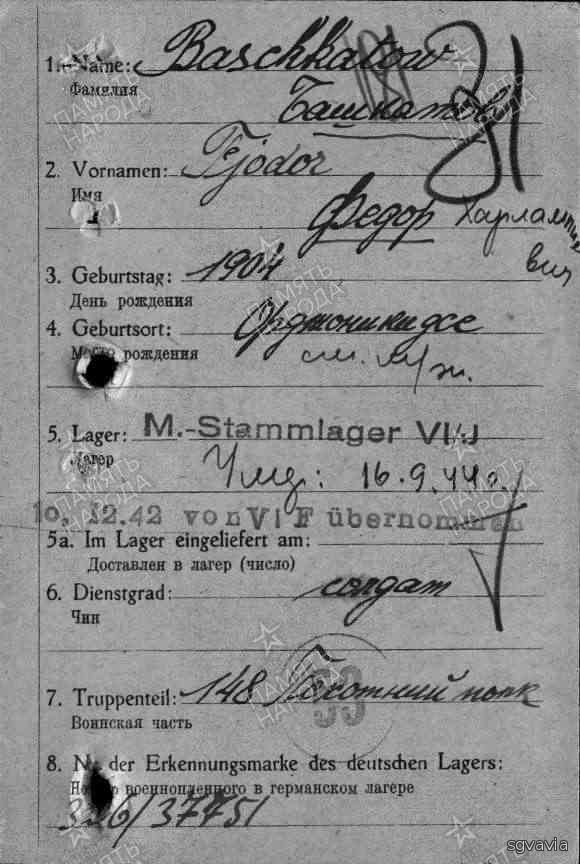 1. Name: Baschkatow
Фамилия
Башкатов
2. Vornamen: Fjodor
Имя
Федор Харлампие
вич
3. Geburtstag: 1904
День рождения
4. Geburtsort: Орджоникидсе
Место рождения
см. м/ж.
5. Lager: M.-Stammlager VI/J
Лагер
Умер: 16.9.44г.
10. 12.42 von VI F übernommen
5a. Im Lager eingeliefert am:
Доставлен в лагер (число)
6. Dienstgrad: солдат
Чин
7. Truppenteil: 148 Пехотний полк
Воинская часть
8. No der Erkennungsmarke des deutschen Lagers:
Номер военнопленного в германском лагере
326/37751
ПАМЯТЬ НАРОДА
sgvavia